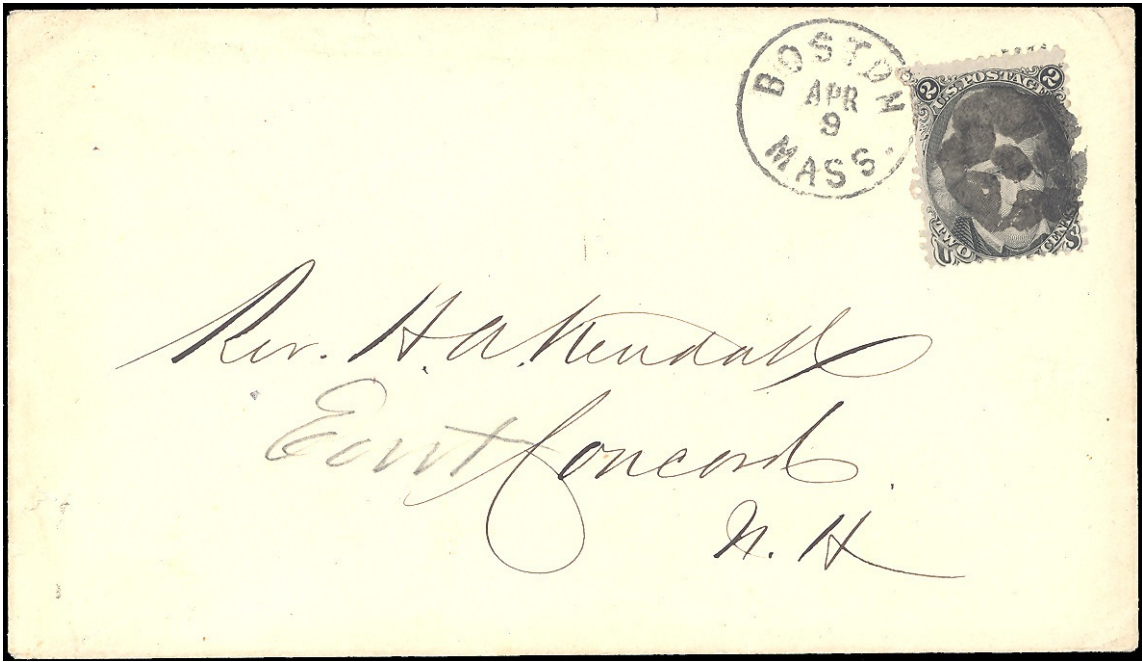 BOSTON
APR
9
MASS.
2 U.S. POSTAGE 2
TWO CENTS
U S
Rev. H. A. Kendall
East Concord.
N. H